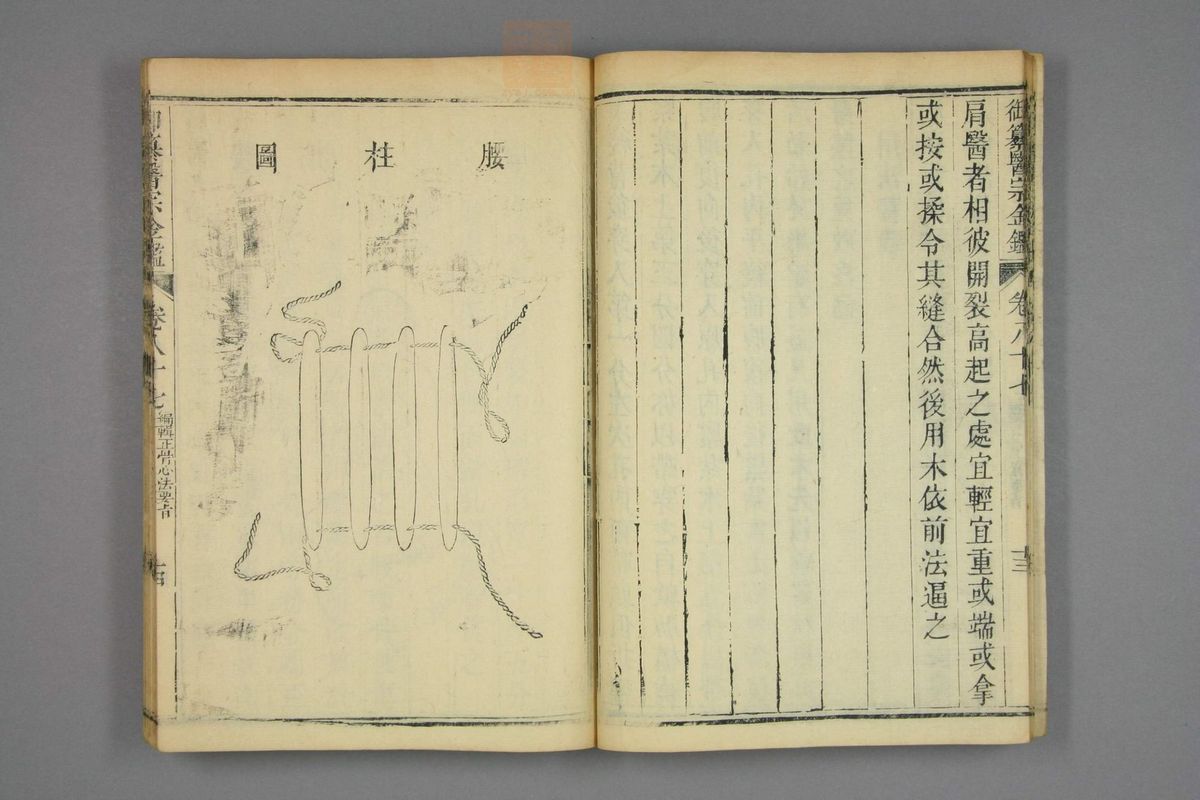 御纂醫宗金鑑
卷八十七
十三
肩醫者相彼開裂高起之處宜輕宜重或端或拿
或按或揉令其縫合然後用木依前法逼之
腰柱圖
御纂醫宗金鑑
卷八十七
編輯正骨心法要旨
十四